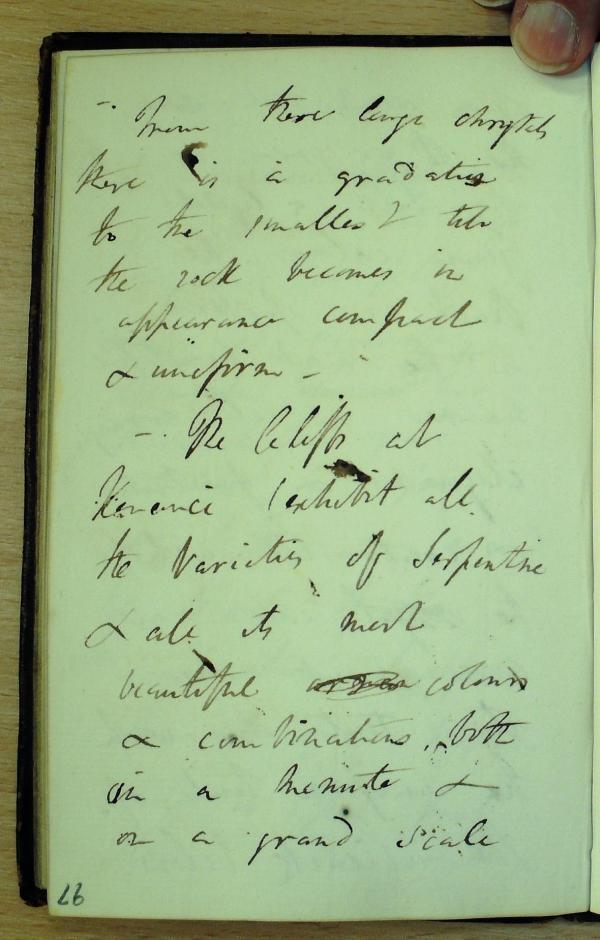 - From these large chrystals
there is a gradation
to the smallest till
the rock becomes in
appearance compact
& uniform -
- The Cliffs at
Kynance exhibit all
the varieties of Serpentine
& all its most
beautiful colours
& combinations, both
in a minute &
on a grand scale
26